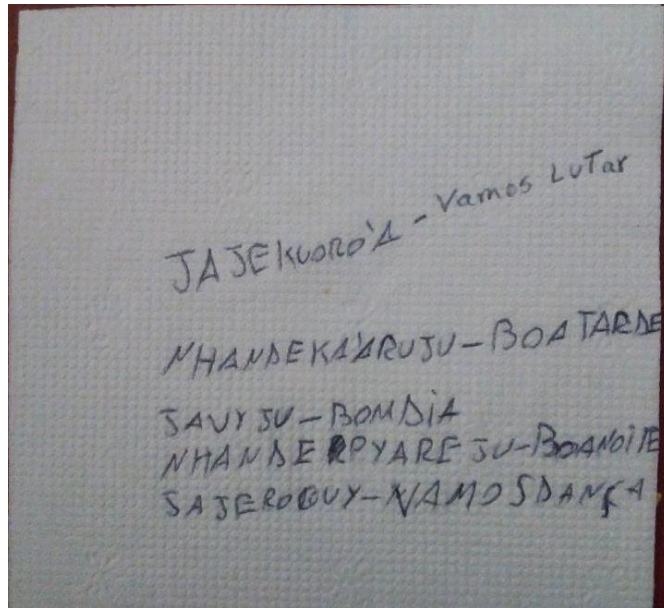 JAJEKUORO'A - Vamos LuTar
NHANDEKA'ARUJU - BOATARDE
JAVYJU - BOMDiA
NHANDEPYAREJU - BOANOiTE
JAJEROGUY - VAMOSDANÇA